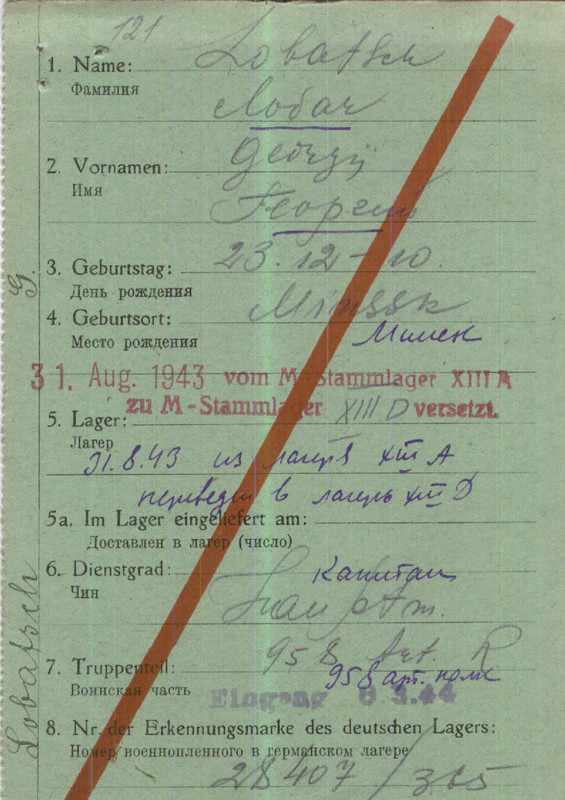 121
1. Name: Lobatsch
Фамилия
Лобач
2. Vornamen: Georgij
Имя
Георгий
3. Geburtstag: 23.12-10.
День рождения
4. Geburtsort: Minssk
Место рождения Минск
31. Aug. 1943 vom M-Stammlager XIII A
zu M-Stammlager XIII D versetzt.
5. Lager:
Лагер
31.8.43 из лагеря XIII A
переведен в лагерь XIII D
5a. Im Lager eingeliefert am:
Доставлен в лагер (число)
6. Dienstgrad: Капитан
Чин Hauptm.
958 Art. R
7. Truppenteil: 958 арт. полк
Воинская часть
Eingang 3.44
8. Nr. der Erkennungsmarke des deutschen Lagers:
Номер военнопленного в германском лагере
28407/365
Lobatsch G.